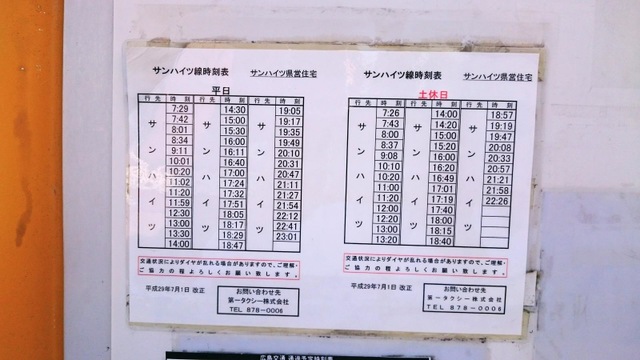 サンハイツ線時刻表 サンハイツ県営住宅
平日
行先 時刻 行先 時刻 行先 時刻
サンハイツ サンハイツ サンハイツ
7:29 14:30 19:05
7:42 15:00 19:17
8:01 15:30 19:35
8:34 16:00 19:49
9:11 16:11 20:10
10:01 16:40 20:31
10:20 17:00 20:47
11:02 17:24 21:11
11:20 17:32 21:27
11:59 17:51 21:54
12:30 18:05 22:12
13:00 18:17 22:41
13:30 18:29 23:01
14:00 18:47
交通状況によりダイヤが乱れる場合がありますので、ご理解・
ご協力の程よろしくお願い致します。
平成29年7月1日 改正
お問い合わせ先
第一タクシー株式会社
TEL 878-0006
サンハイツ線時刻表 サンハイツ県営住宅
土休日
行先 時刻 行先 時刻 行先 時刻
サンハイツ サンハイツ サンハイツ
7:26 14:00 18:57
7:43 14:20 19:19
8:00 15:00 19:47
8:37 15:20 20:08
9:08 16:00 20:33
10:10 16:20 20:57
10:20 16:49 21:21
11:00 17:01 21:58
11:20 17:19 22:26
12:00 17:40
12:20 18:00
13:00 18:15
13:20 18:40
交通状況によりダイヤが乱れる場合がありますので、ご理解・
ご協力の程よろしくお願い致します。
平成29年7月1日 改正
お問い合わせ先
第一タクシー株式会社
TEL 878-0006
広島交通 通過予定時刻表